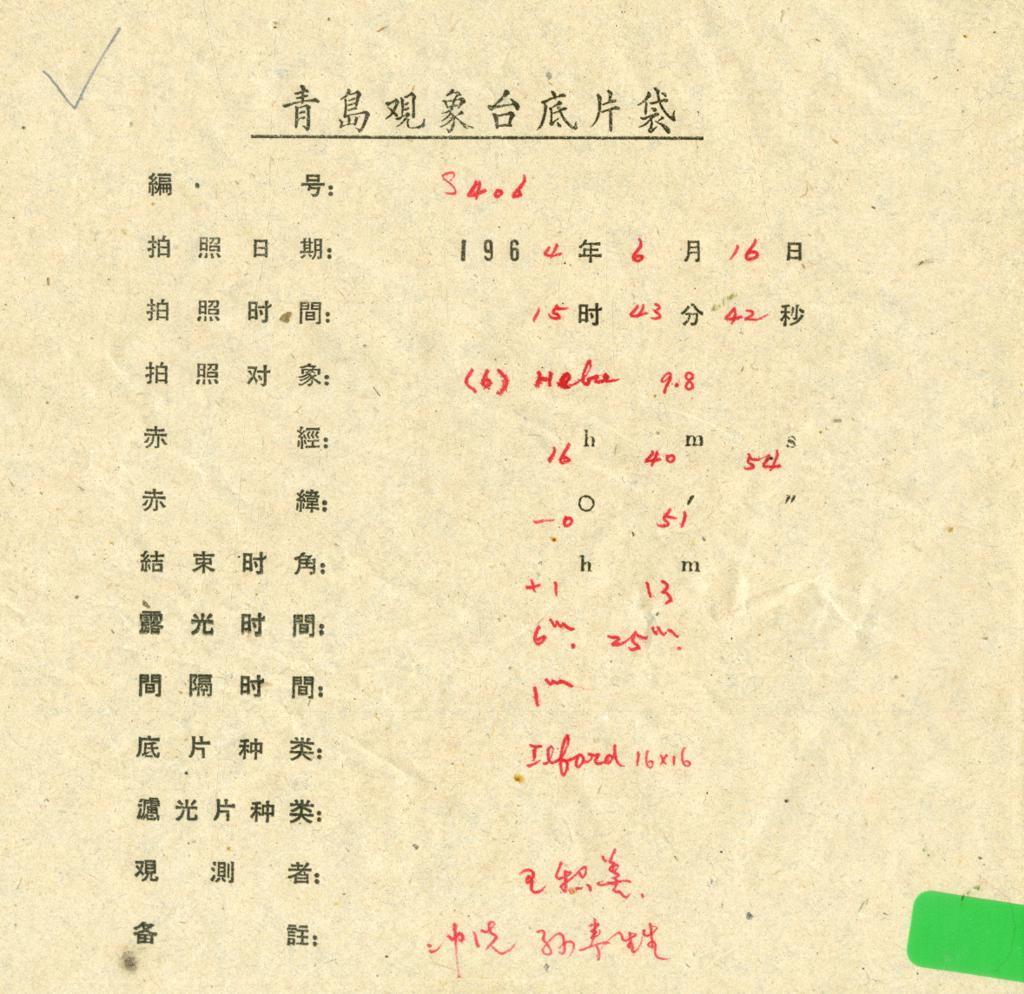 青島观象台底片袋
編 号: S406
拍照日期: 1964年6月16日
拍照时間: 15时43分42秒
拍照对象: (6) Hebe 9.8
赤 經: 16h 40m 54s
赤 緯: -0° 51′ ″
結束时角: +1h 13m
露光时間: 6m. 25m.
間隔时間: 1m
底片种类: Ilford 16×16
濾光片种类:
观測者: 王
备 註: 冲洗 孙寿